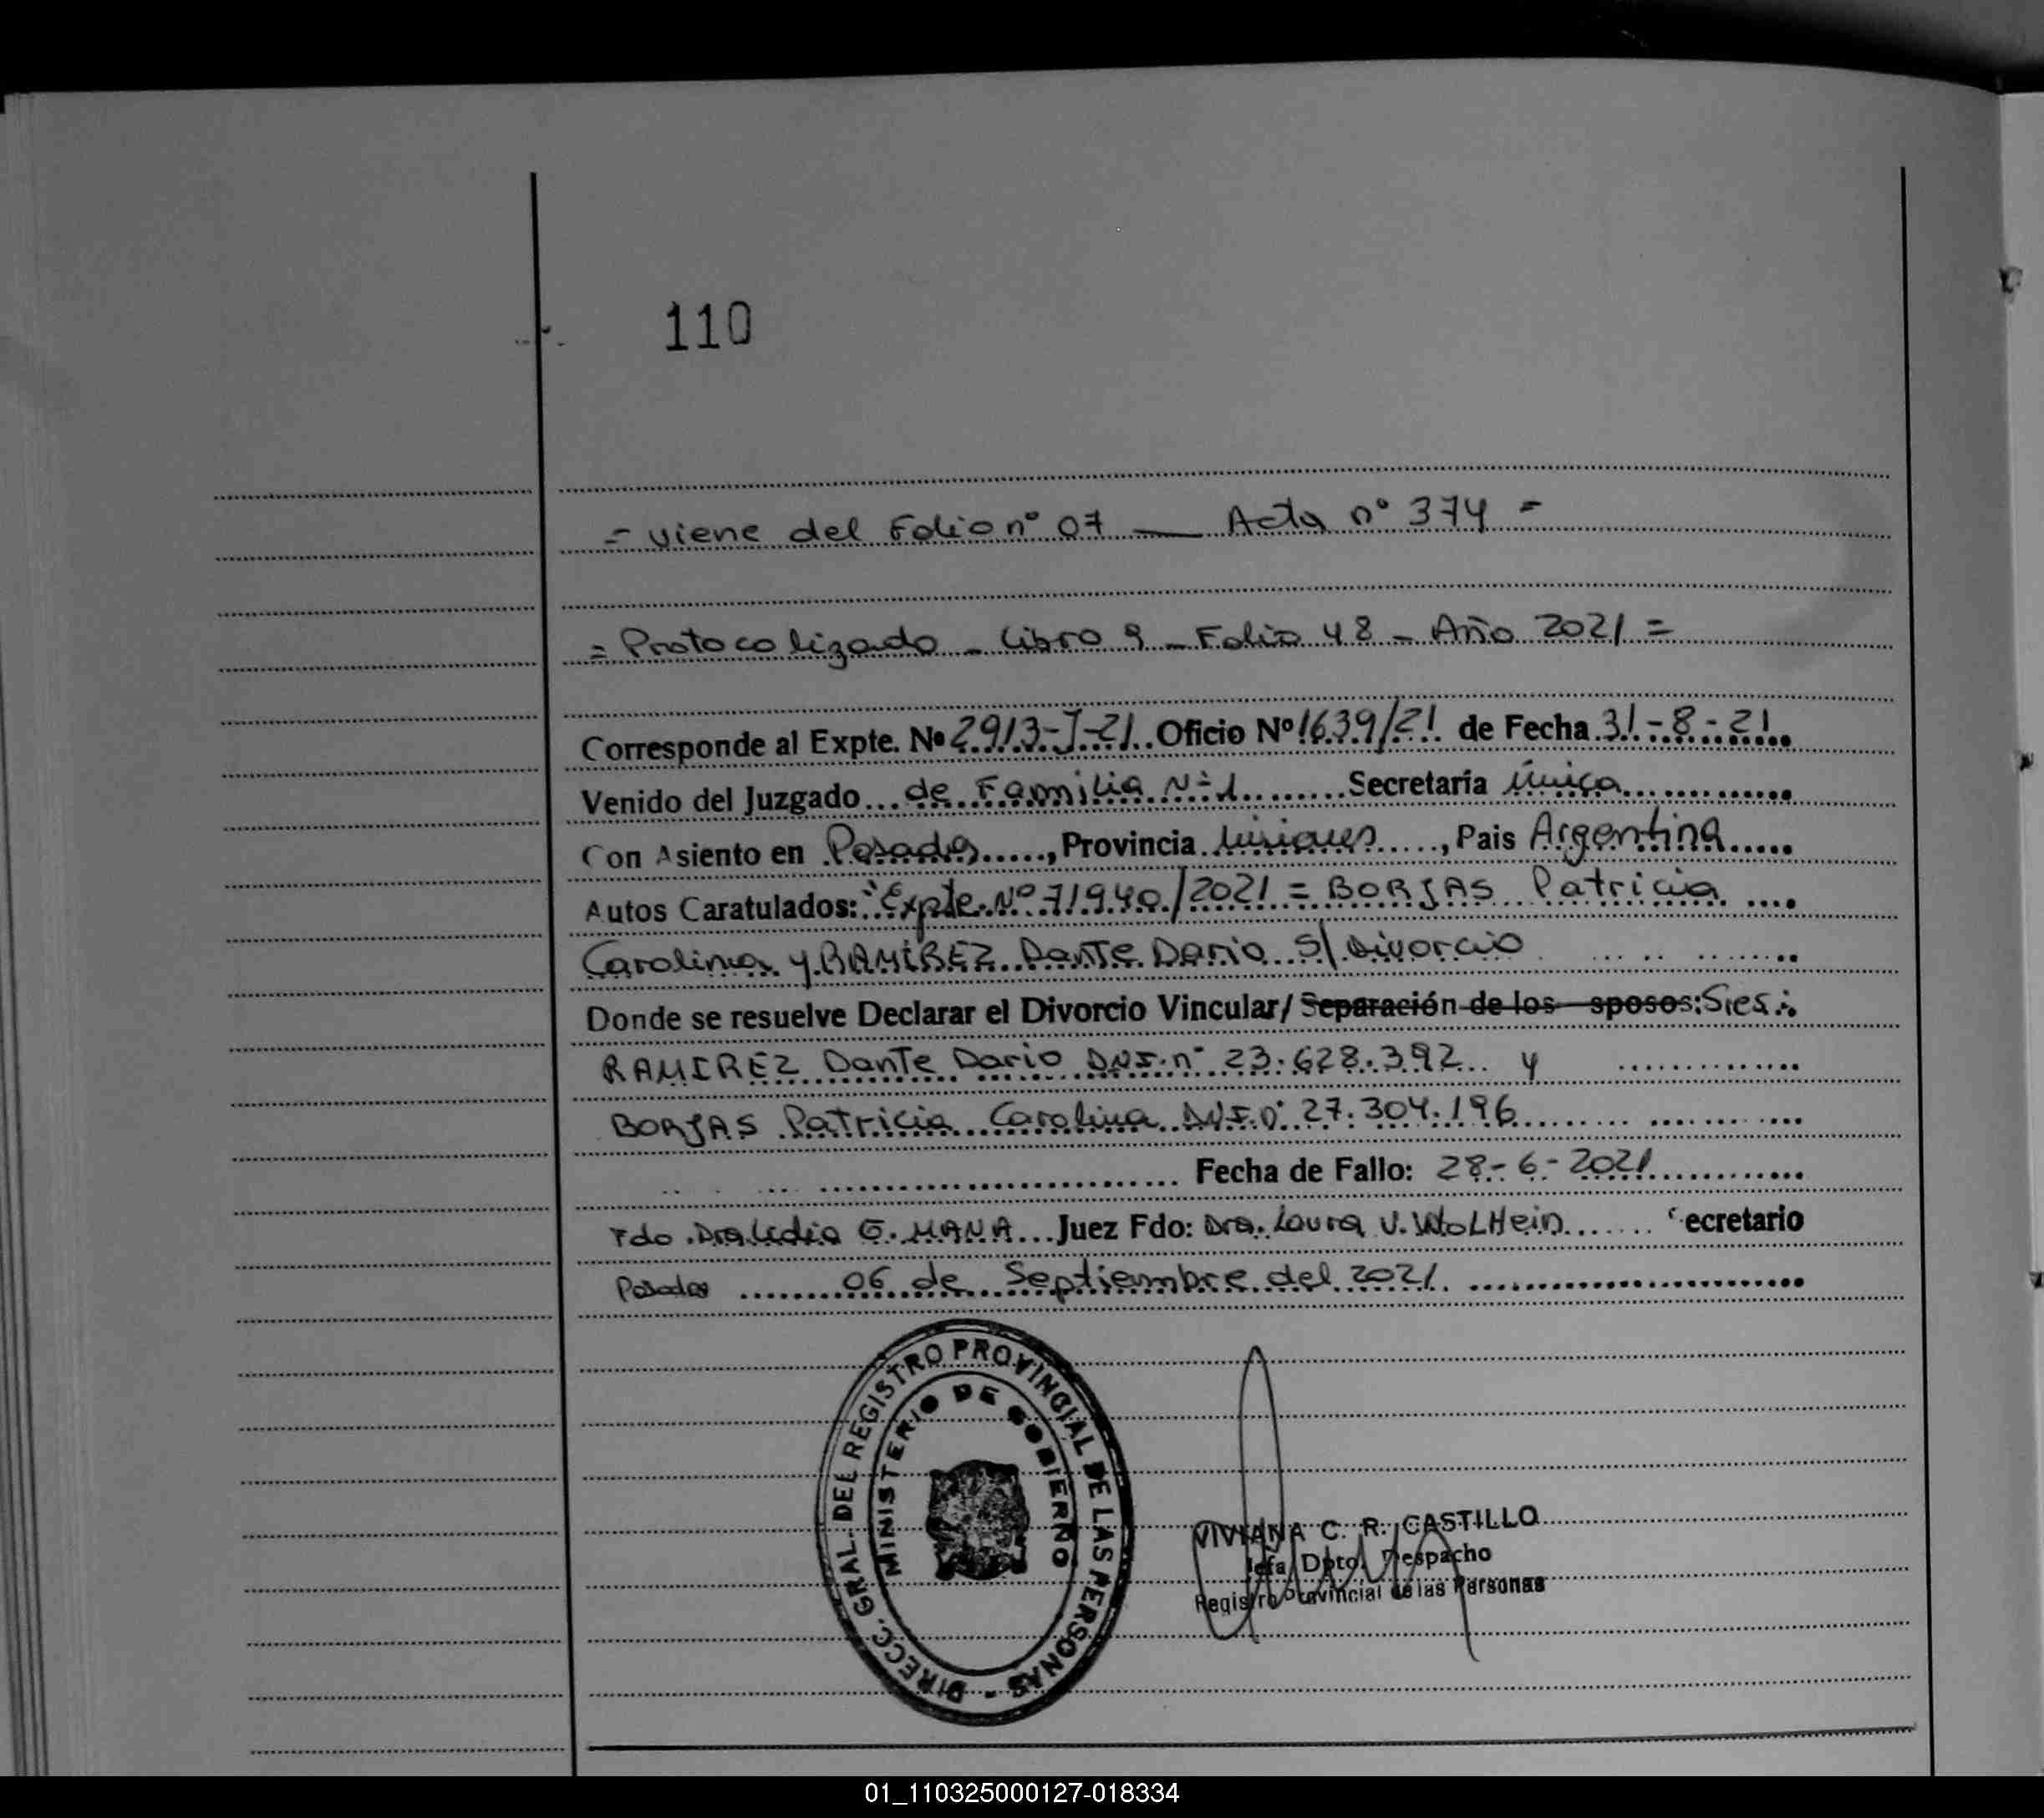 110
= viene del Folio nº 07 — Acta nº 374 =
= Protocolizado - Libro 9 - Folio 48 - Año 2021 =
Corresponde al Expte. Nº 2913-J-21. Oficio Nº 1639/21 de Fecha 31-8-21
Venido del Juzgado de Familia Nº 1 Secretaría Única
Con Asiento en Posadas, Provincia Misiones, Pais Argentina
Autos Caratulados: "Expte. Nº 71940/2021 = BORJAS Patricia
Carolina y RAMIREZ Dante Dario S/ Divorcio
Donde se resuelve Declarar el Divorcio Vincular/ Separación de los sposos: Sres:
RAMIREZ Dante Dario DNI. nº 23.628.392 y
BORJAS Patricia Carolina DNI. nº 27.304.196
Fecha de Fallo: 28-6-2021
Fdo. Dra Lidia G. MANA Juez Fdo: Dra. Laura V. WolHein ecretario
Posadas 06 de Septiembre del 2021.
DIRECC. GRAL. DEL REGISTRO PROVINCIAL DE LAS PERSONAS -
MINISTERIO DE GOBIERNO
VIVIANA C. R. CASTILLO
Jefa Dpto. Despacho
Registro Provincial de las Personas
01_110325000127-018334